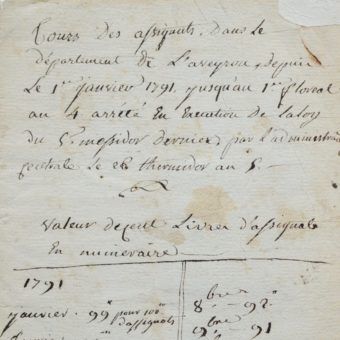 Cours des assignats, dans le
département de L'aveyron, depuis
Le 1er janvier 1791, jusqu'au 1er floreal
an 4 arrêté En Execution de la loy
du 5 messidor dernier, par l'administration
centrale le 28 thermidor an 5.
Valeur de cent Livres d'assignats
En numeraire
1791
janvier . 99# pour 100#
d'assignats
8bre - 92#
9bre 91